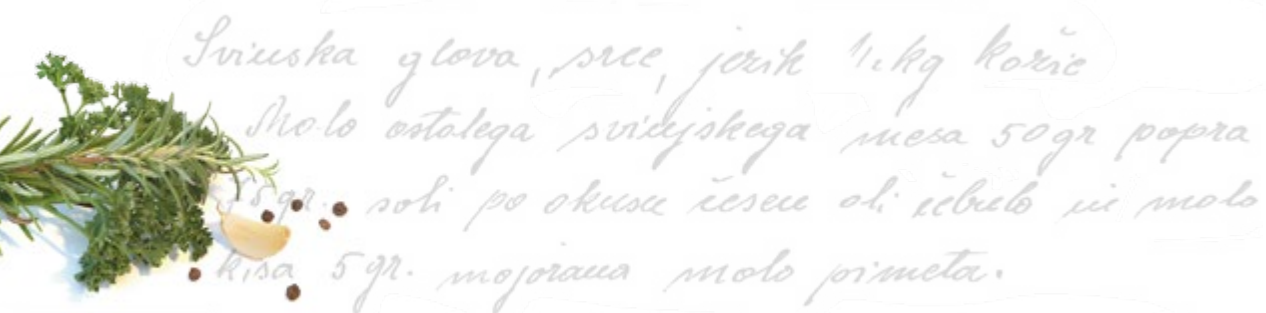 Svinska glava, srce, jezik 1/2 kg kožic
Malo ostalega svinjskega mesa 50 gr popra
15 gr. soli po okusu česen ali čebulo in malo
kisa 5 gr. majorana malo pimeta.